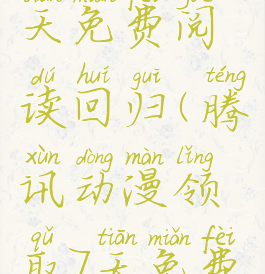 天免费阅
dú huí guī téng
读回归(腾
xùn dòng màn lǐng
讯动漫领
qǔ tiān miǎn fèi
取7天免费